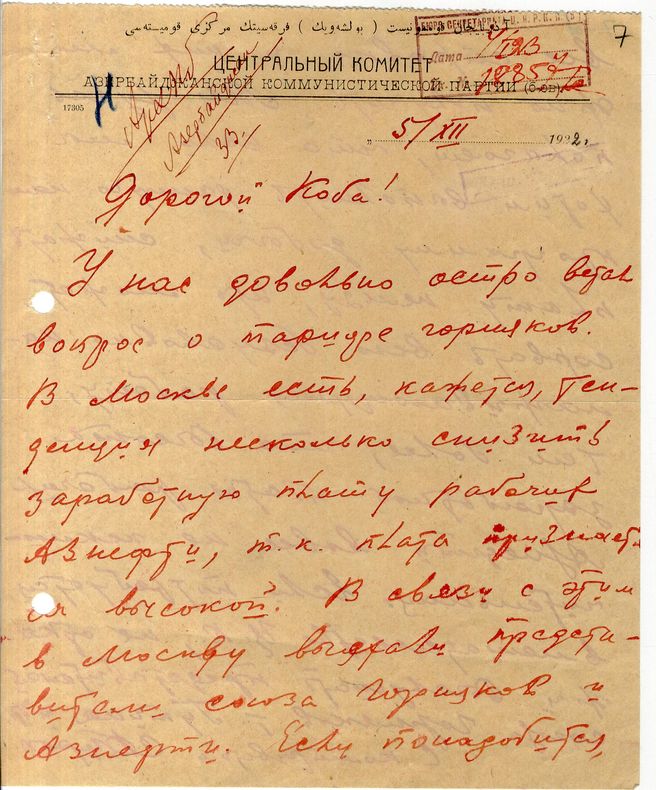 آذربايجان قومونيست (بولشه‌ويك) فرقه‌سينك مركزى قوميته‌سى
БЮРО СЕКРЕТАРИАТА Ц.К.Р.К.П. (б.)
7
Дата
ЦЕНТРАЛЬНЫЙ КОМИТЕТ
АЗЕРБАЙДЖАНСКОЙ КОММУНИСТИЧЕСКОЙ ПАРТИИ (б-ов)
17305
Архив
Азербайджан
„ 5/XII 1922 г.
Дорогой Коба!
У нас довольно остро встал
вопрос о тарифе горняков.
В Москве есть, кажется, тен-
денция несколько снизить
заработную плату рабочих
Азнефти, т.к. плата признает-
ся высокой. В связи с этим
в Москву выехали предста-
вители союза горняков и
Азнефти. Если понадобится,